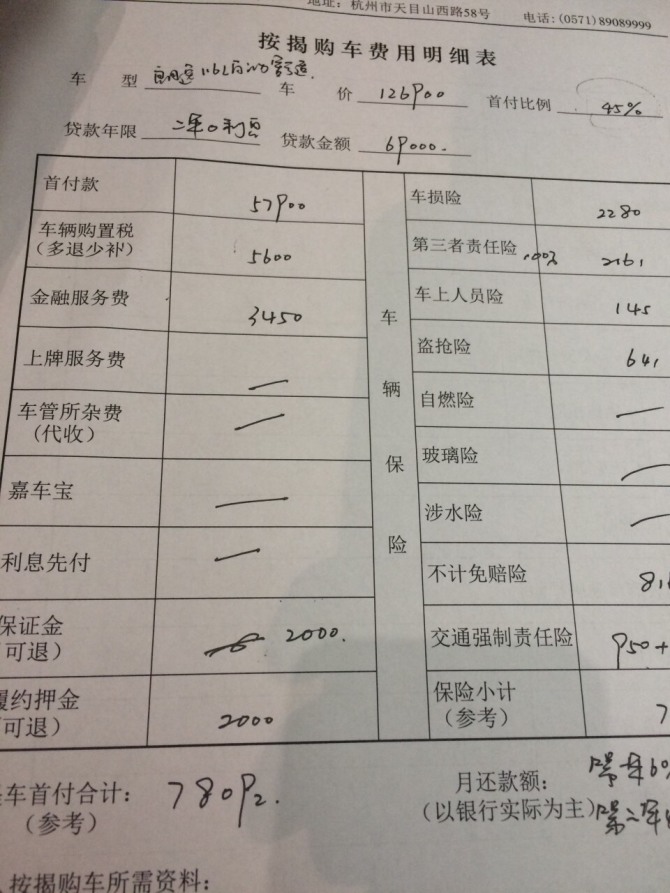 地址：杭州市天目山西路58号 电话：(0571)89089999
按揭购车费用明细表
车 型 朗逸1.6L自动舒适 车 价 126900 首付比例 45%
贷款年限 二年0利息 贷款金额 69000.
首付款 57900 车损险 2280
车辆购置税（多退少补） 5600 第三者责任险 100万 2161
金融服务费 3450 车上人员险 145
上牌服务费 — 盗抢险 641
车管所杂费（代收） — 自燃险 —
嘉车宝 — 玻璃险 —
利息先付 — 涉水险 —
不计免赔险
保证金 可退） 2000. 交通强制责任险 950+
履约押金 可退） 2000 保险小计（参考） 7
车辆保险
车首付合计： 78092. 月还款额：
（参考） （以银行实际为主）
按揭购车所需资料：